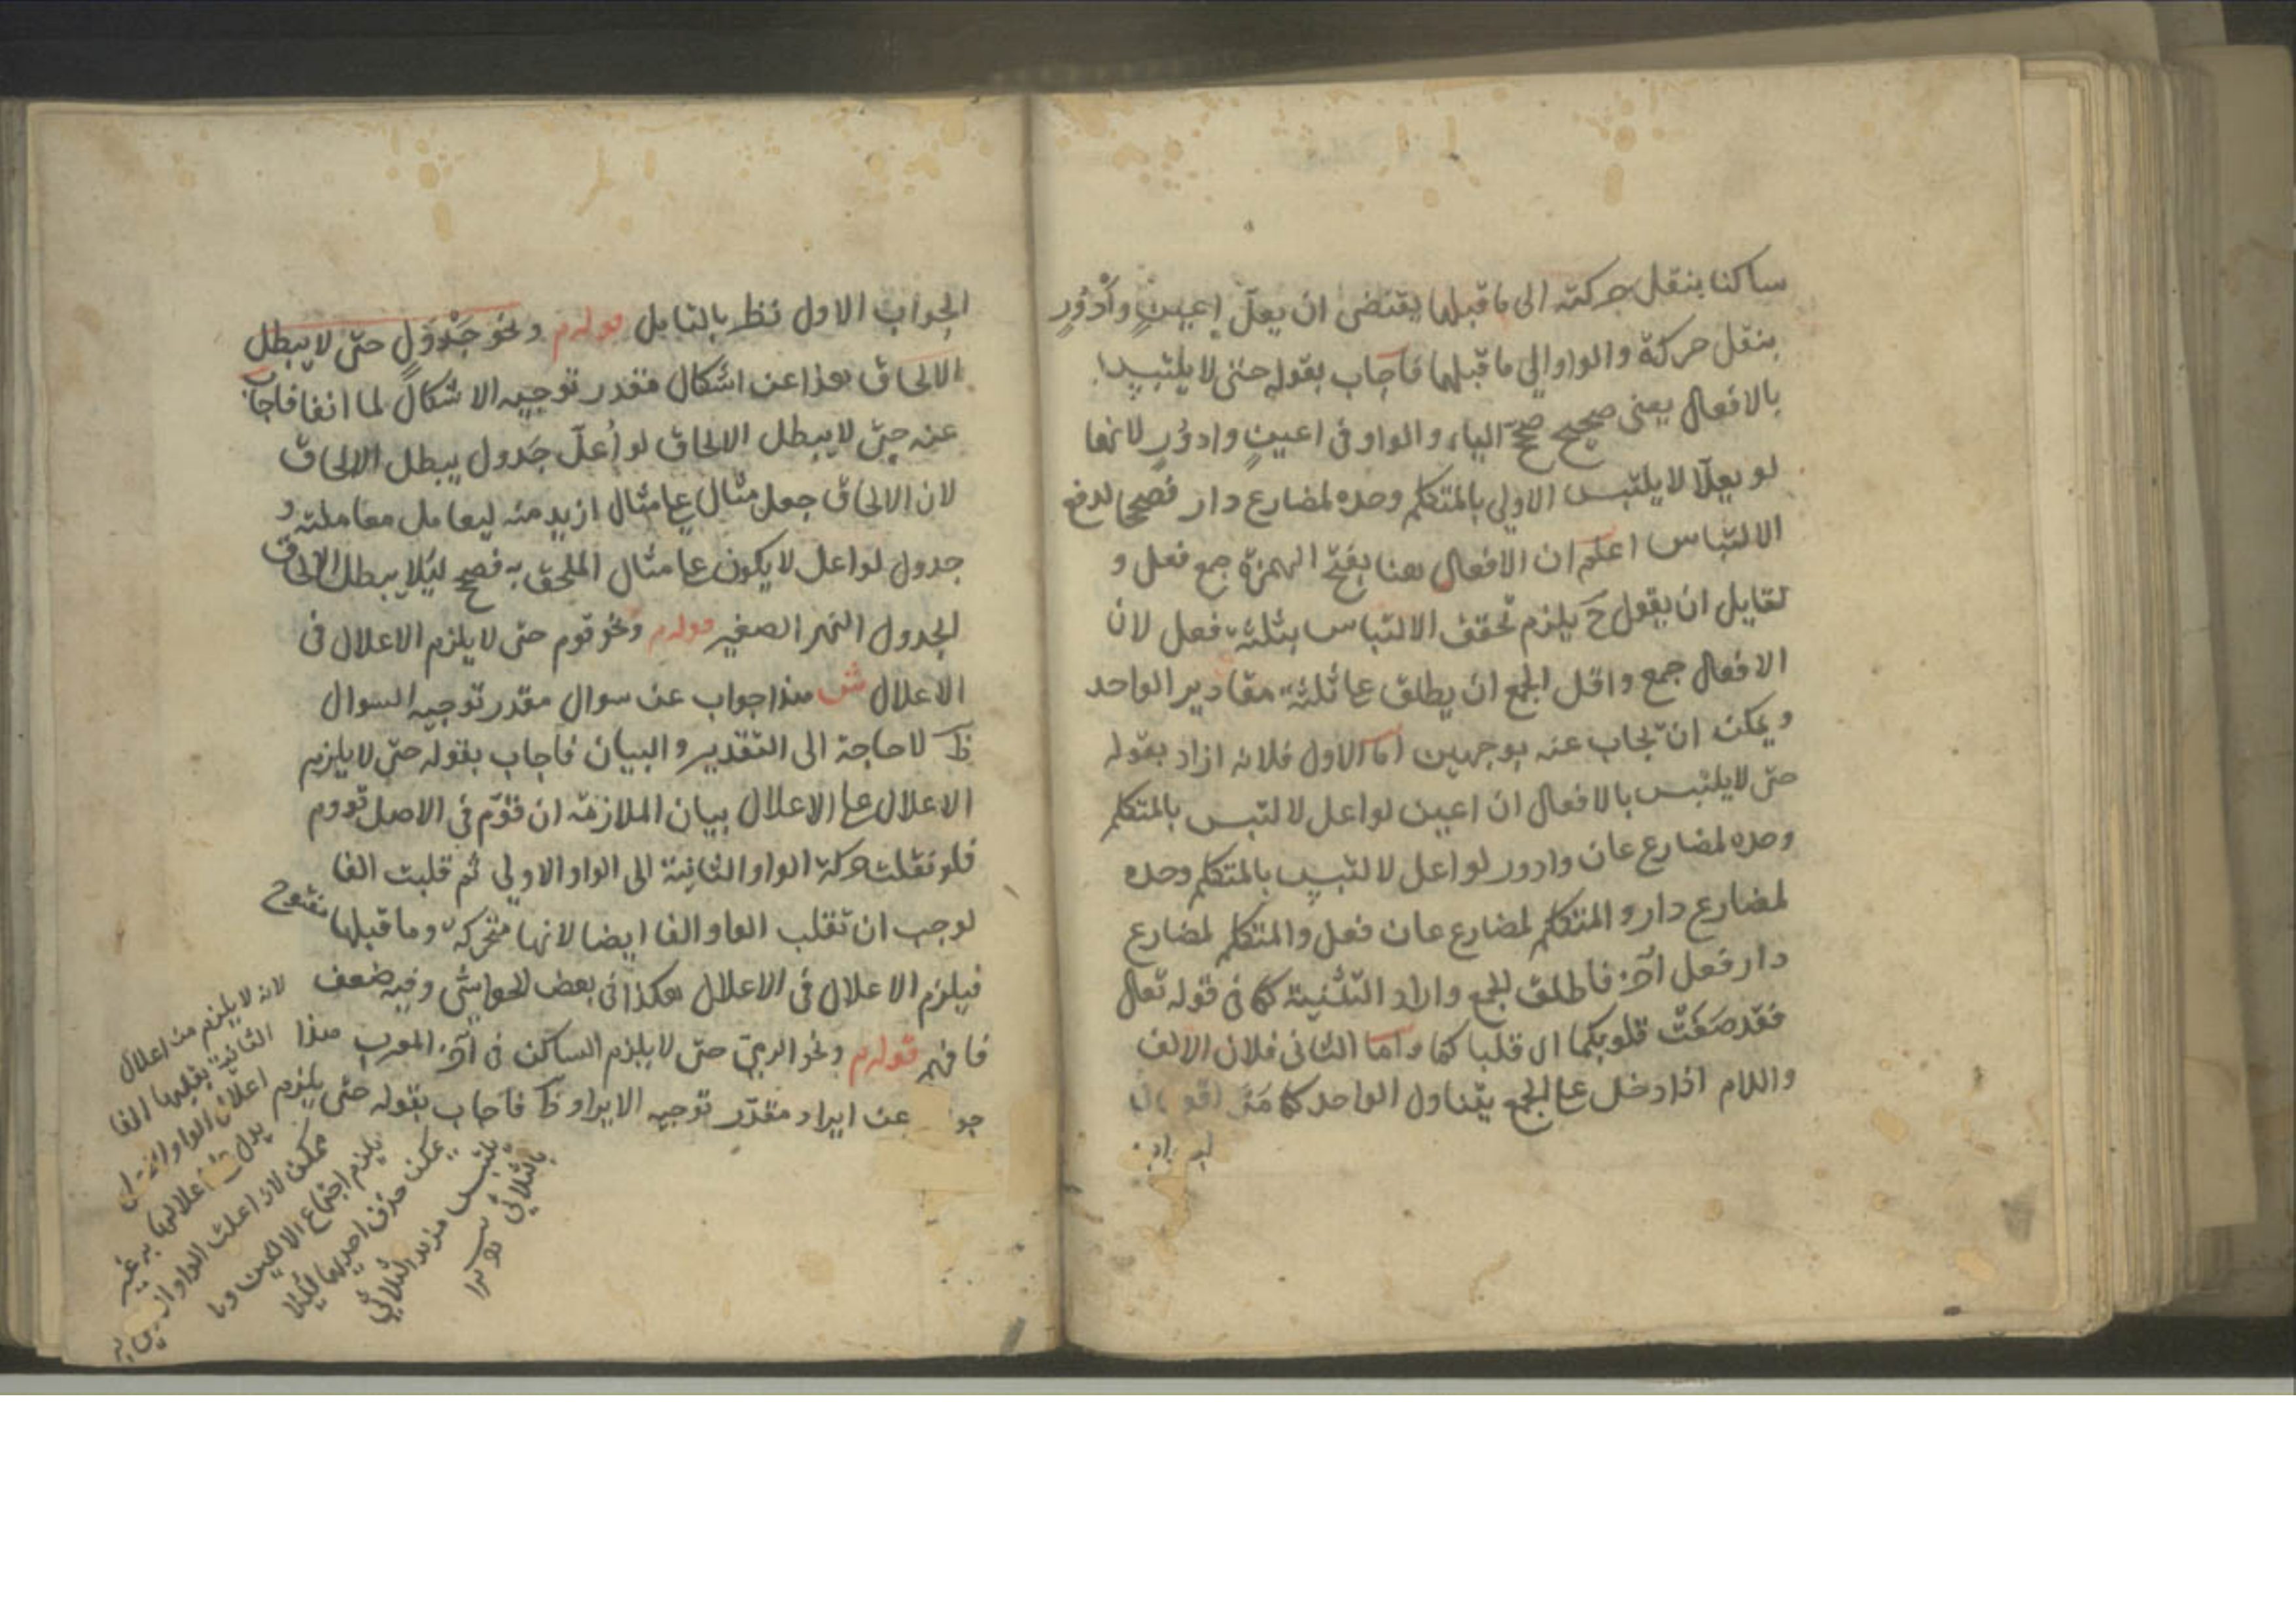 ساكنا بنقل حركته الى ما قبلها يقتضى ان يعلّ اعيينٍ وأَدْوُرٍ
بنقل حركة والواو الى ما قبلها فاجاب بقوله حتى لا يلتبس
بالافعال يعنى صحيح صحّ الياء والواو فى اعيينٍ وادوُرٍ لانها
لو يعلّا لا يلتبس الاولى بالمتكلم وحده لمضارع دار فصحا لدفع
الالتباس اعلم ان الافعال هنا بفتح الهمزة جمع فعل و
لقايل ان يقول ح يلزم تحقق الالتباس بثلثة فعل لان
الافعال جمع واقل الجمع ان يطلق على ثلثة مقادير الواحد
ويمكن ان يجاب عنه بوجهين اما الاول فلانه اراد بقوله
حتى لا يلتبس بالافعال ان اعيين لو اعل لالتبس بالمتكلم
وحده لمضارع عان وادور لو اعل لالتبس بالمتكلم وحده
لمضارع دار والمتكلم لمضارع عان فعل والمتكلم لمضارع
دار فعل آخر فاطلق الجمع واراد التثنية كما فى قوله تعالى
فقد صَغَتْ قلوبكما اى قلبا كما واما الثانى فلان الالف
واللام اذا دخل على الجمع يتناول الواحد كما مَرّ
الجواب الاول نظر بالتايل قوله م ونحو جَدْوَلٍ حتى لا يبطل
الالحاق هذا عن اشكال مقدر توجيه الاشكال لما انفا فاجاب
عنه حتى لا يبطل الالحاق لو اُعلّ جَدول يبطل الالحاق
لان الالحاق جعل مثال على مثال ازيد منه ليعامل معاملته و
جدول لو اعل لا يكون على مثال الملحق به فصح ليُلا يبطل الالحاق
الجدول النهر الصغير قوله م ونحو قوم حتى لا يلزم الاعلال فى
الاعلال ش هذا جواب عن سوال مقدر توجيه السوال
ظ لا حاجة الى التقدير والبيان فاجاب بقوله حتى لا يلزم
الاعلال على الاعلال بيان الملازمة ان قوّم فى الاصل قووم
فلو نقلت حركة الواو الثانية الى الواو الاولى ثم قلبت الفا
لوجب ان تقلب الواو الفا ايضا لانها متحركة وما قبلها مفتوح
فيلزم الاعلال فى الاعلال هكذا فى بعض الحواشى وفيه ضعف
فافهم قوله م ونحو الرمىّ حتى لا يلزم الساكن فى آخر المعرب هذا
عن ايراد مقدّر توجيه الايراد ظ فاجاب بقوله حتى يلزم
لانه لا يلزم من اعلال
الثانية بقلبها الفا
اعلال الواو
يدل اعلالها به غير
ممكن لانه اعلت الواو
يلزم اجتماع الالفين ولا
يمكن حذف احديهما ليُلا
يلتبس مزيد الثلاثى
بالثلاثى